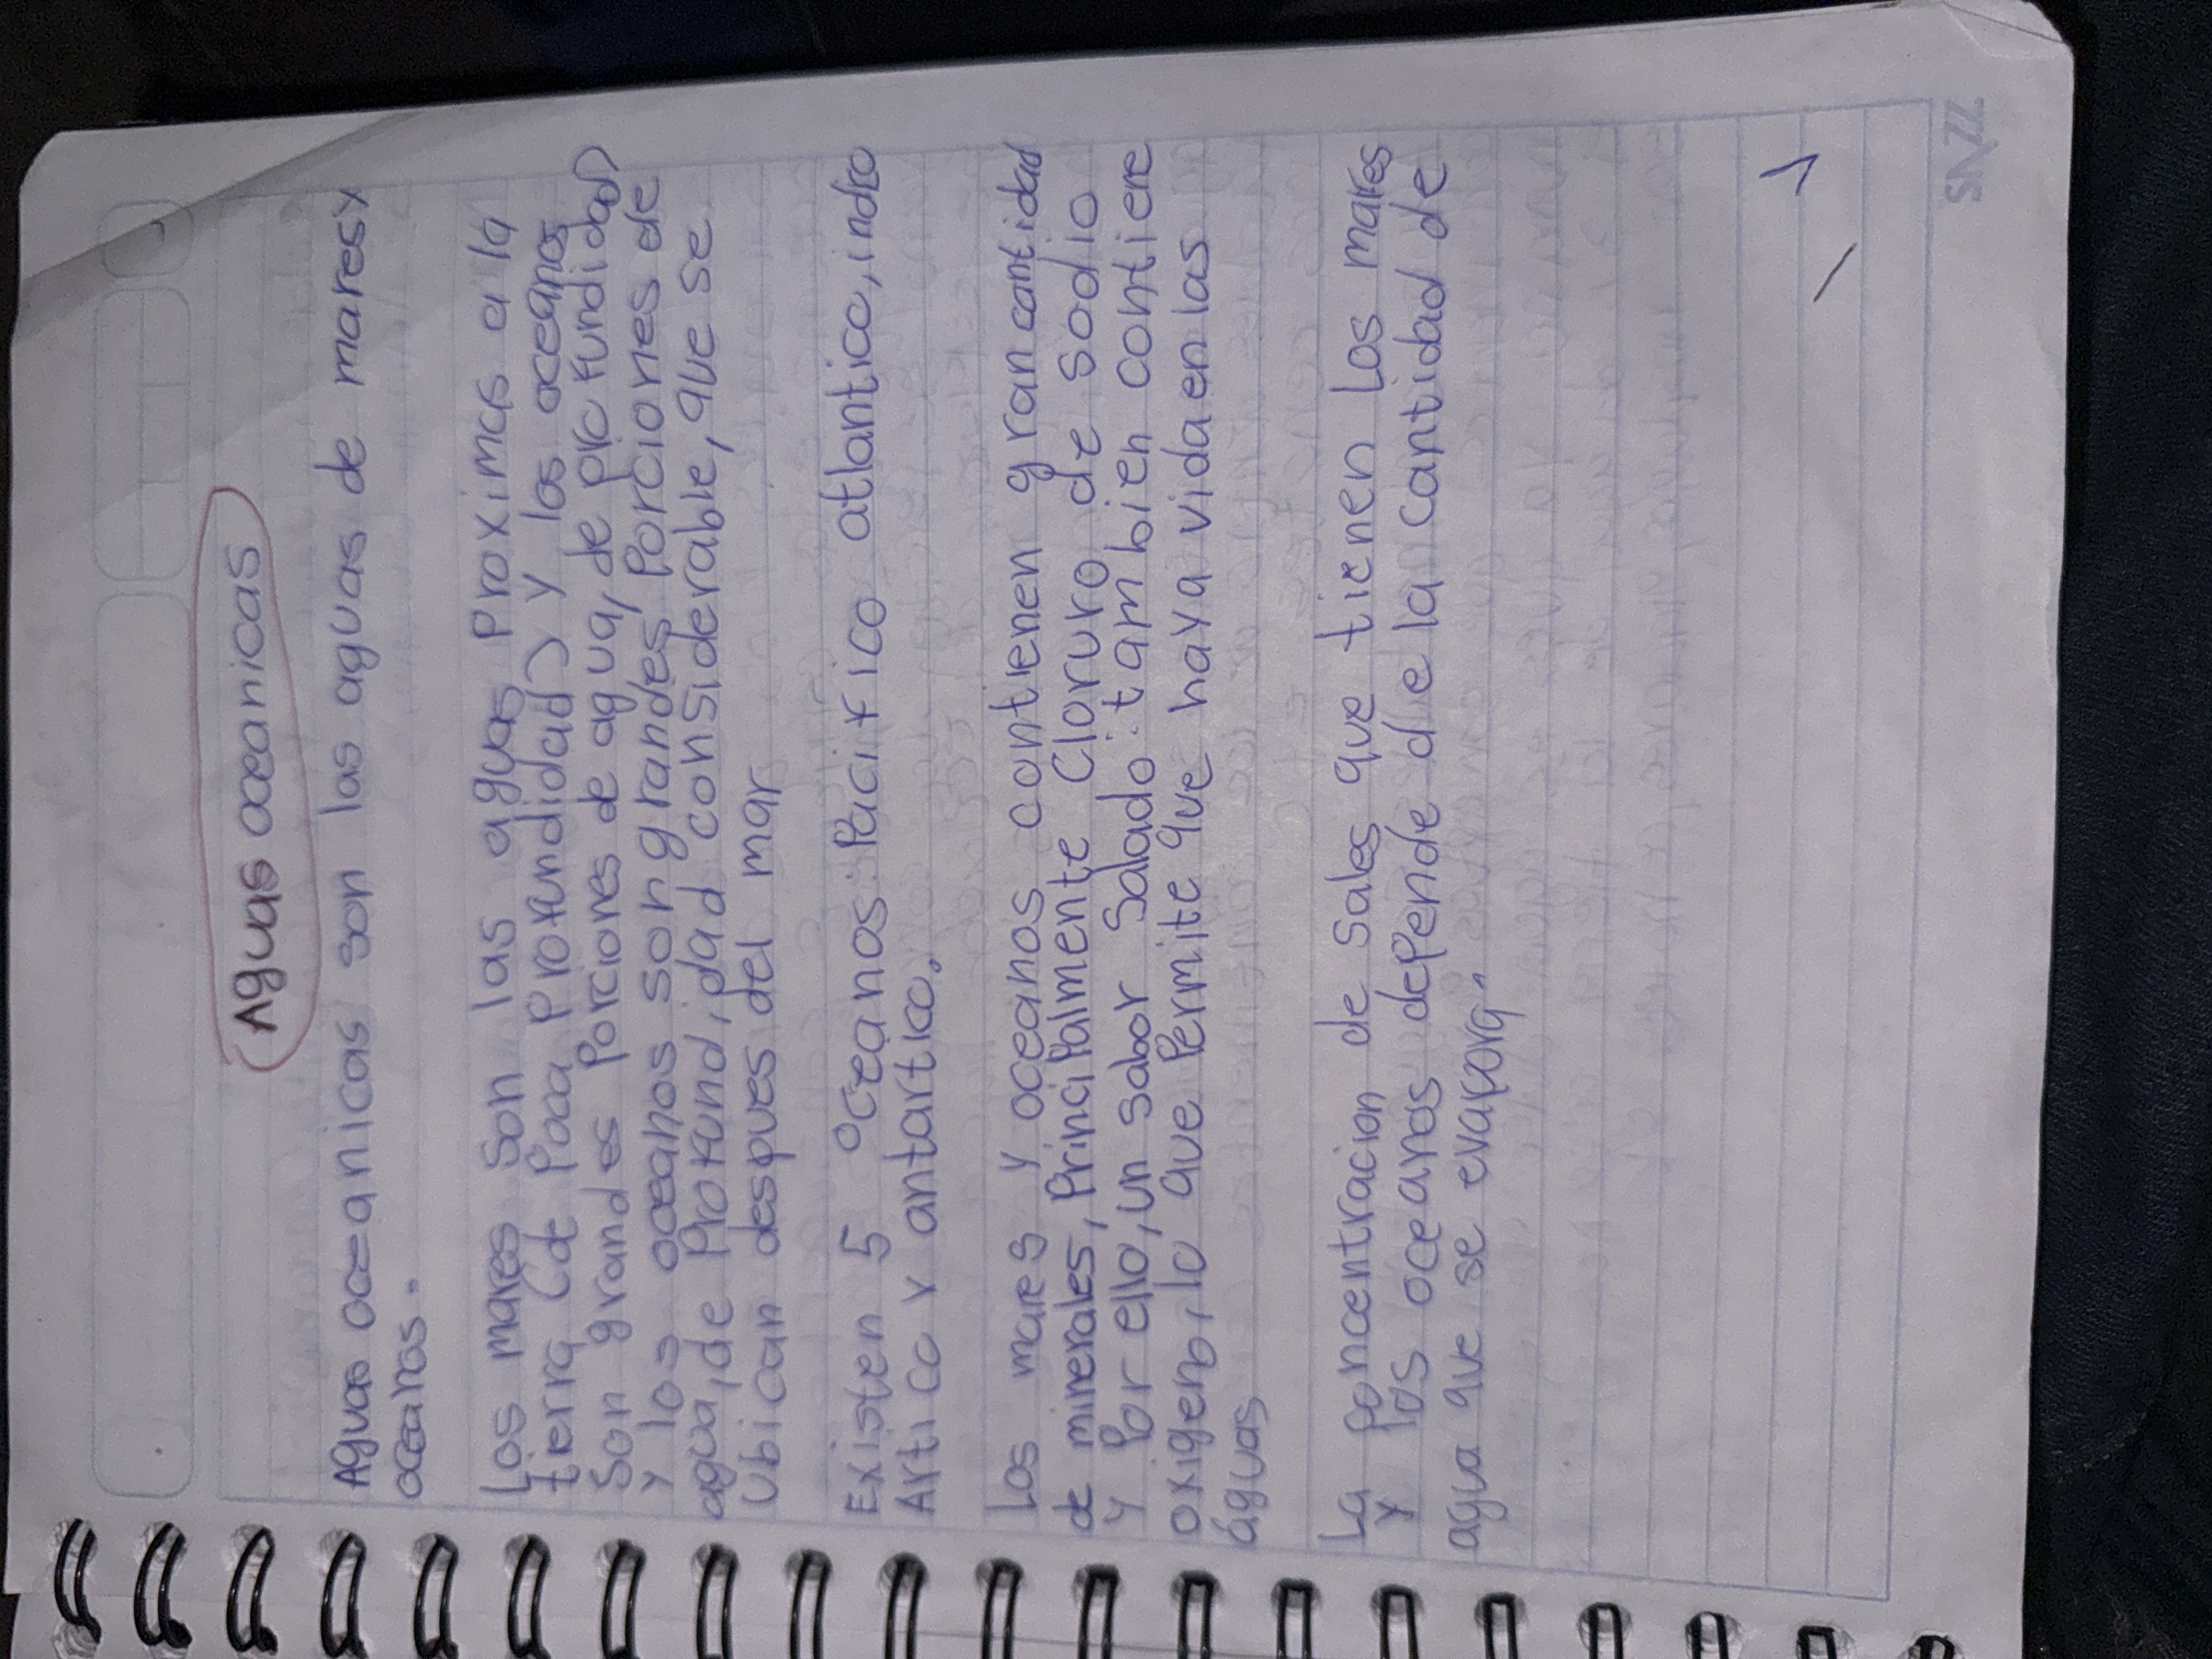 Aguas oceanicas
Aguas oceanicas son las aguas de mares y
oceanos.
Los mares son las aguas proximas a la
tierra (de poca profundidad) y los oceanos
son grandes porciones de agua, de profundidad)
y los oceanos son grandes porciones de
agua, de profundidad considerable, que se
ubican despues del mar
Existen 5 oceanos: Pacifico atlantico, indico
Artico y antartico.
Los mares y oceanos contienen gran cantidad
de minerales, principalmente Cloruro de sodio
y por ello, un sabor salado. tambien contiene
oxigeno, lo que permite que haya vida en las
aguas
La concentracion de sales que tienen los mares
y los oceanos depende de la cantidad de
agua que se evapora.